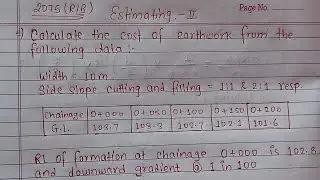 2075 (R/B)
Estimating - II
Page No.
Calculate the cost of earthwork from the
following data :-
Width = 10m
Side slope cutting and filling = 1:1 & 2:1 resp.
Chainage 0+000 0+050 0+100 0+150 0+200
G.L. 103.7 103.3 102.7 102.1 101.6
RL of formation at chainage 0+000 is 102.8
and downward gradient @ 1 in 100